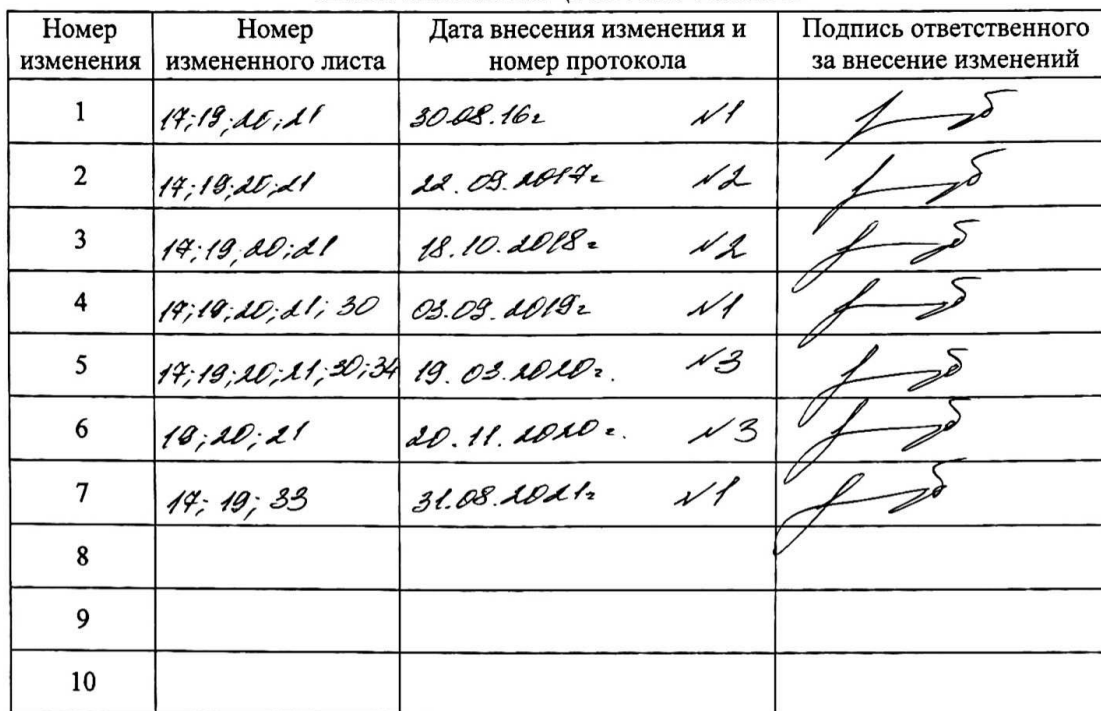 Номер изменения Номер измененного листа Дата внесения изменения и номер протокола Подпись ответственного за внесение изменений
1 17;19;20;21 30.08.16г №1
2 17;19;20;21 22.09.2017г №2
3 17;19;20;21 18.10.2018г №2
4 17;19;20;21;30 03.09.2019г №1
5 17;19;20;21;30;34 19.03.2020г. №3
6 19;20;21 20.11.2020г. №3
7 17;19;33 31.08.2021г №1
8
9
10